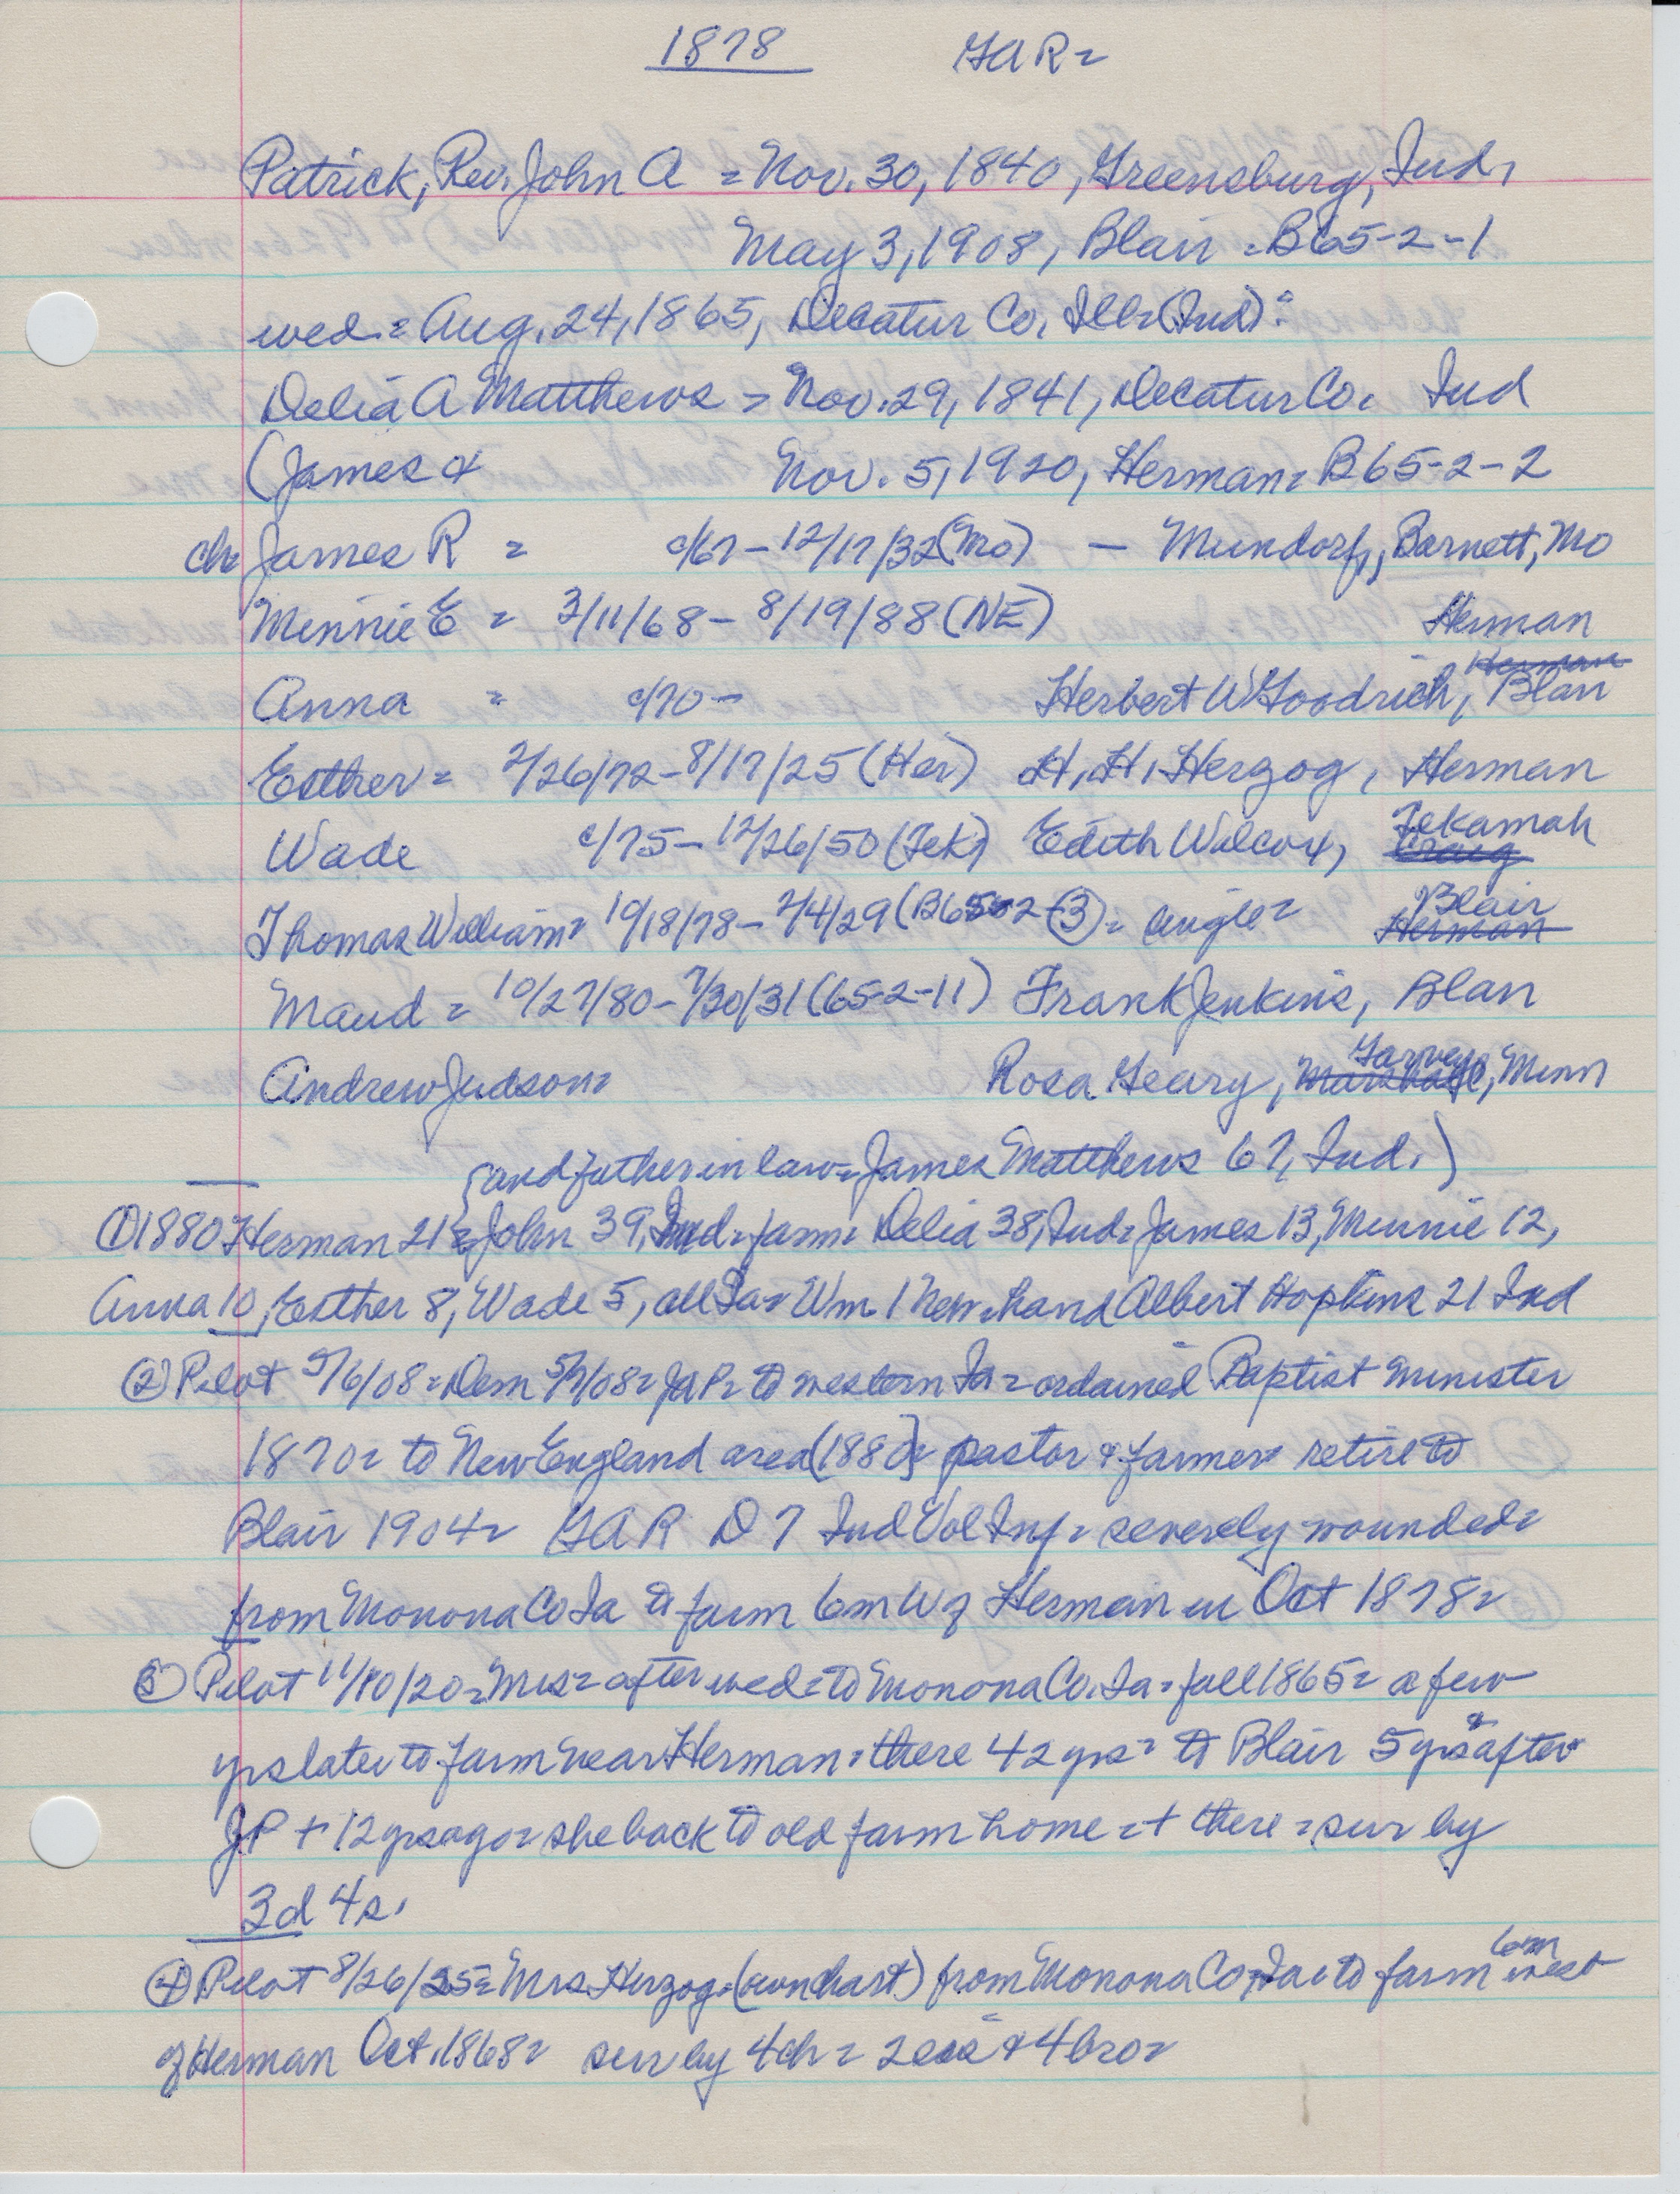 1878 GAR=
Patrick, Rev. John A = Nov. 30, 1840, Greensburg, Ind,
May 3, 1908, Blair = B65-2-1
wed = Aug. 24, 1865, Decatur Co, Ill = (Ind) =
Delia A Matthews = Nov. 29, 1841, Decatur Co. Ind
(James & Nov. 5, 1920, Herman = B65-2-2
ch James R = c/67 - 12/17/32 (Mo) — Mundorf, Barnett, Mo
Minnie E = 3/11/68 - 8/19/88 (NE) Herman
Herman
Anna = c/70 - Herbert W Goodrich, Blair
Esther = 2/26/72 - 8/17/25 (Her) H, H, Herzog, Herman
Tekamah
Wade c/75 - 12/26/50 (Tek) Edith Wilcox, Craig
Blair
Thomas William = 10/18/78 - 2/4/29 (B65-2-3) = single = Herman
Maud = 10/27/80 - 7/30/31 (65-2-11) Frank Jenkins, Blair
Garvey
Andrew Judson = Rosa Geary, Minn
(and father in law = James Matthews 67, Ind.)
① 1880 Herman 21 = John 39, Ind = farm = Delia 38, Ind = James 13, Minnie 12,
Anna 10, Esther 8, Wade 5, all Ia = Wm 1 Neb = hand Albert Hopkins 21 Ind
② Pilot 5/6/08 = Dem 5/7/08 = JAP = to western Ia = ordained Baptist minister
1870 = to New England area (1880) = pastor & farmer = retire to
Blair 1904 = GAR D 7 Ind Vol Inf = severely wounded =
from Monona Co Ia to farm 6m W of Herman in Oct 1878 =
③ Pilot 11/10/20 = Mrs = after wed = to Monona Co. Ia = fall 1865 = a few
yrs later to farm near Herman = there 42 yrs = to Blair 5 yrs & after
JP + 12 yrs ago = she back to old farm home = + there = sur by
3d 4s.
6m
④ Pilot 8/26/25 = Mrs. Herzog = (own chart) from Monona Co, Ia = to farm west
of Herman Oct. 1868 = sur by 4ch = 2sis & 4bro =